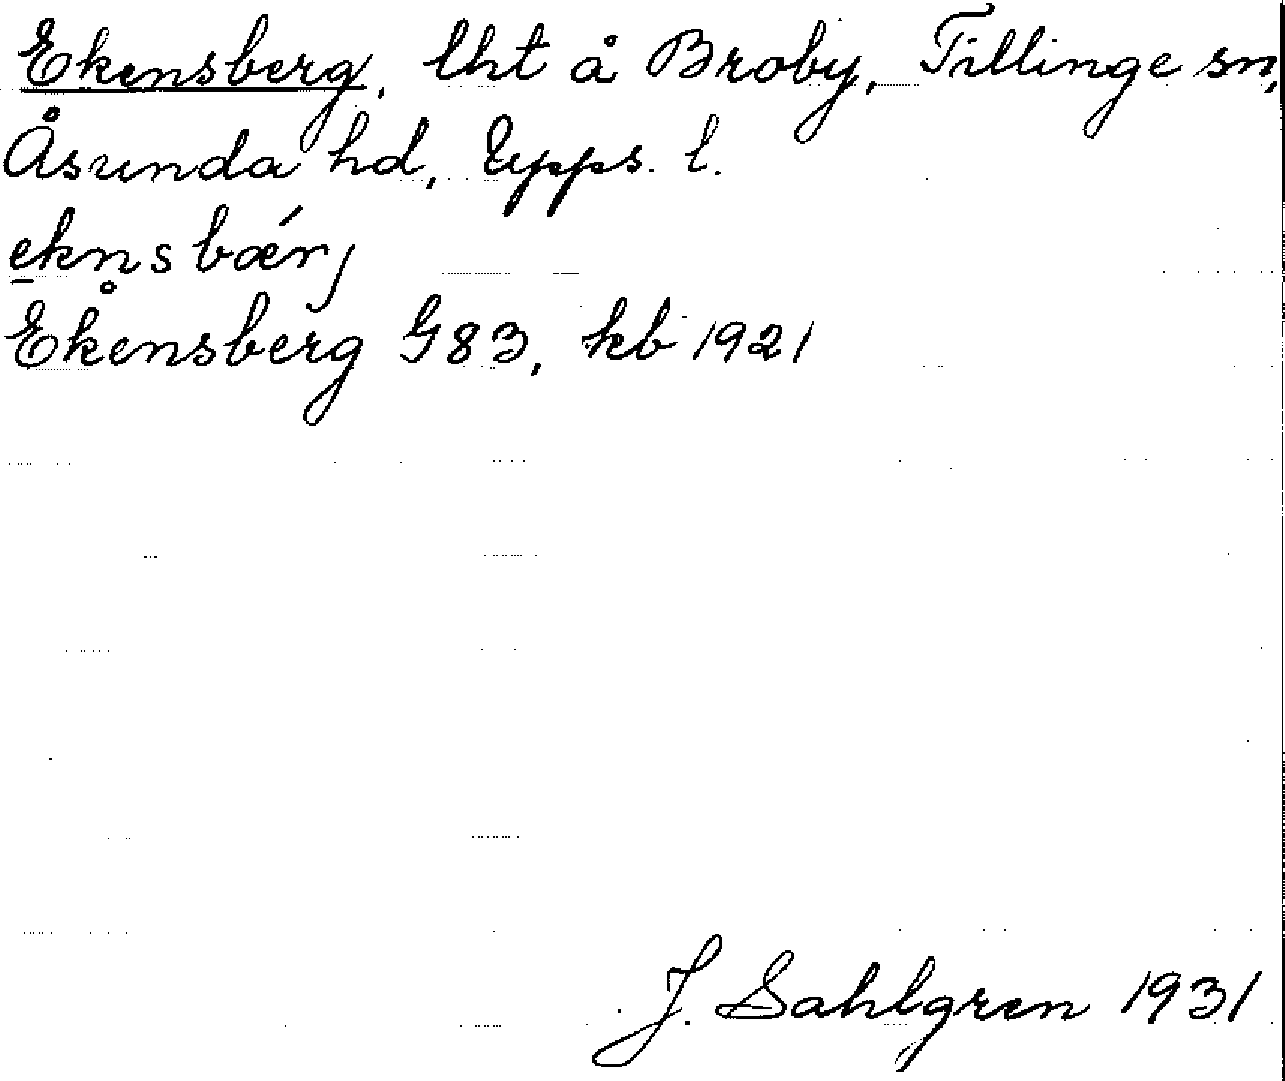 Ekensberg, lht å Broby, Tillinge sn,
Åsunda hd, Upps. l.
e̠kn̥sbǽrj
Ekensberg G83, kb 1921
J. Sahlgren 1931